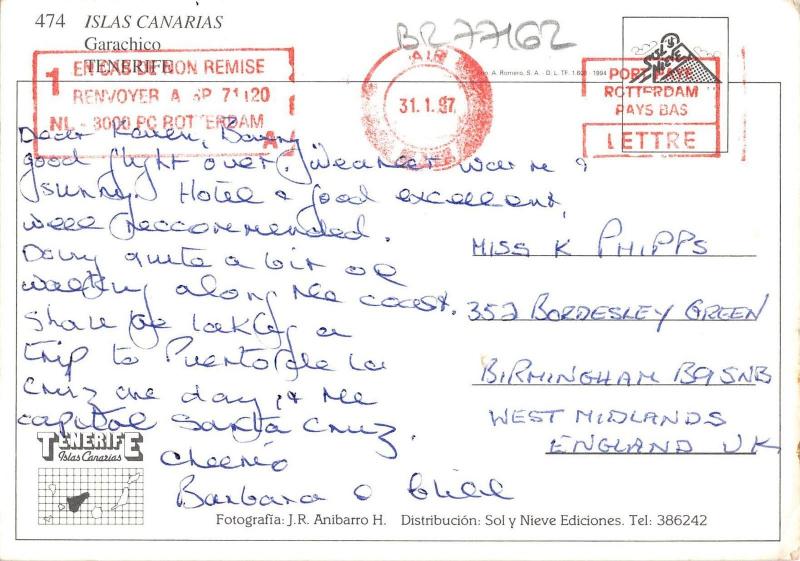 474 ISLAS CANARIAS
Garachico
TENERIFE
BR77162
SOL Y NIEVE
A. Romero, S. A. - D. L. TF. 1.628 - 1994
1
EN CAS DE NON REMISE
RENVOYER A SP 71120
NL - 3000 PC ROTTERDAM
AIR
31.1.97
PORT PAYE
ROTTERDAM
PAYS BAS
LETTRE
Dear Karen, Barry
good flight over. Weather warm &
sunny. Hotel & food excellent,
well reccommended.
Doing quite a bit of
walking along the coast.
Shall be taking a
trip to Puerto de la
Cruz one day, & the
capital Santa Cruz.
Cheerio
Barbara &
MISS K PHIPPS
352 BORDESLEY GREEN
BIRMINGHAM B9 5NB
WEST MIDLANDS
ENGLAND UK
TENERIFE
Islas Canarias
Fotografía: J.R. Anibarro H. Distribución: Sol y Nieve Ediciones. Tel: 386242